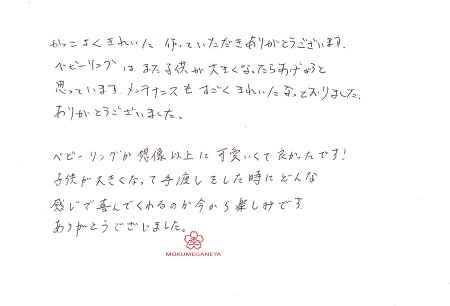 かっこよくきれいに作っていただきありがとうございます。
ベビーリングはまた子供が大きくなったらあげようと
思っています。メンテナンスもすごくきれいになっておりました。
ありがとうございました。
ベビーリングが想像以上に可愛いくて良かったです!
子供が大きくなって手渡しをした時にどんな
感じで喜んでくれるのか今から楽しみです。
ありがとうございました。
MOKUMEGANEYA